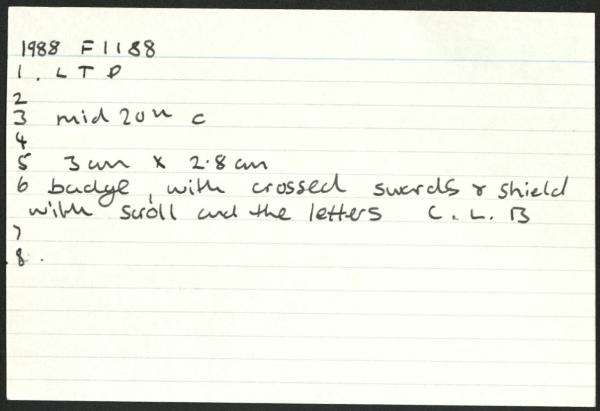 1988 F1188
1. LTP
2
3 mid 20th c
4
5 3cm x 2.8cm
6 badge, with crossed swords & shield
with scroll and the letters C.L.B
7
8.